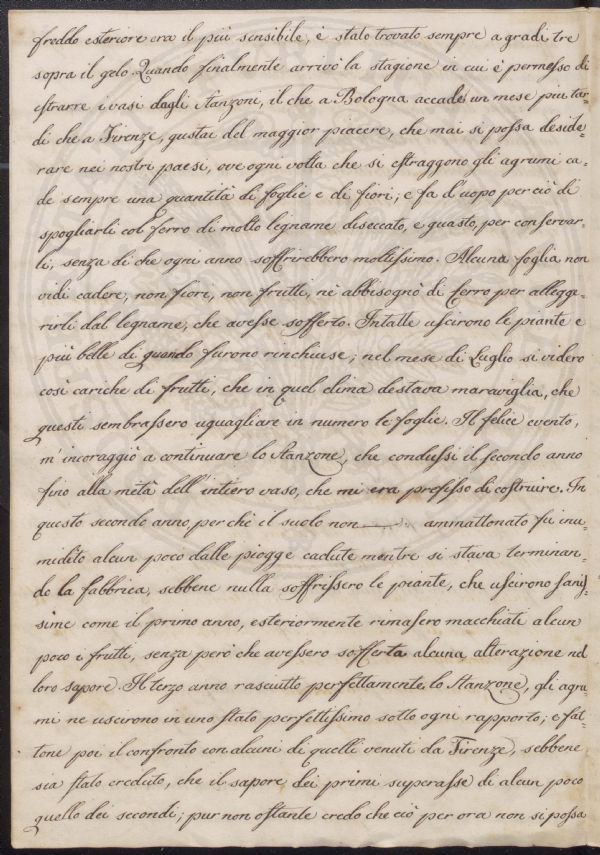 freddo esteriore era il più sensibile, è stato trovato sempre a gradi tre
sopra il gelo. Quando finalmente arrivò la stagione in cui è permesso di
estrarre i vasi dagli stanzoni, il che a Bologna accade un mese più tar=
di che a Firenze, gustai del maggior piacere, che mai si possa deside=
rare nei nostri paesi, ove ogni volta che si estraggono gli agrumi ca=
de sempre una quantità di foglie e di fiori; e fa d'uopo perciò di
spogliarli col ferro di molto legname diseccato, e guasto, per conservar=
li, senza di che ogni anno soffrirebbero moltissimo. Alcuna foglia non
vidi cadere, non fiori, non frutti, nè abbisognò di ferro per allegge=
rirli dal legname, che avesse sofferto. Intatte uscirono le piante e
più belle di quando furono rinchiuse; nel mese di Luglio si videro
così cariche di frutti, che in quel clima destava maraviglia, che
questi sembrassero uguagliare in numero le foglie. Il felice evento,
m'incoraggiò a continuare lo stanzone, che condussi il secondo anno
fino alla metà dell'intiero vaso, che mi era prefisso di costruire. In
questo secondo anno perchè il suolo non ammattonato fu inu=
midito alcun poco dalle piogge cadute mentre si stava terminan=
do la fabbrica, sebbene nulla soffrissero le piante, che uscirono sanis=
sime come il primo anno, esteriormente rimasero macchiati alcun
poco i frutti, senza però che avessero sofferta alcuna alterazione nel
loro sapore. Il terzo anno rasciutto perfettamente lo stanzone, gli agru=
mi ne uscirono in uno stato perfettissimo sotto ogni rapporto; e fat=
tone poi il confronto con alcuni di quelli venuti da Firenze, sebbene
sia stato creduto, che il sapore dei primi superasse di alcun poco
quello dei secondi; pur non ostante credo che ciò per ora non si possa